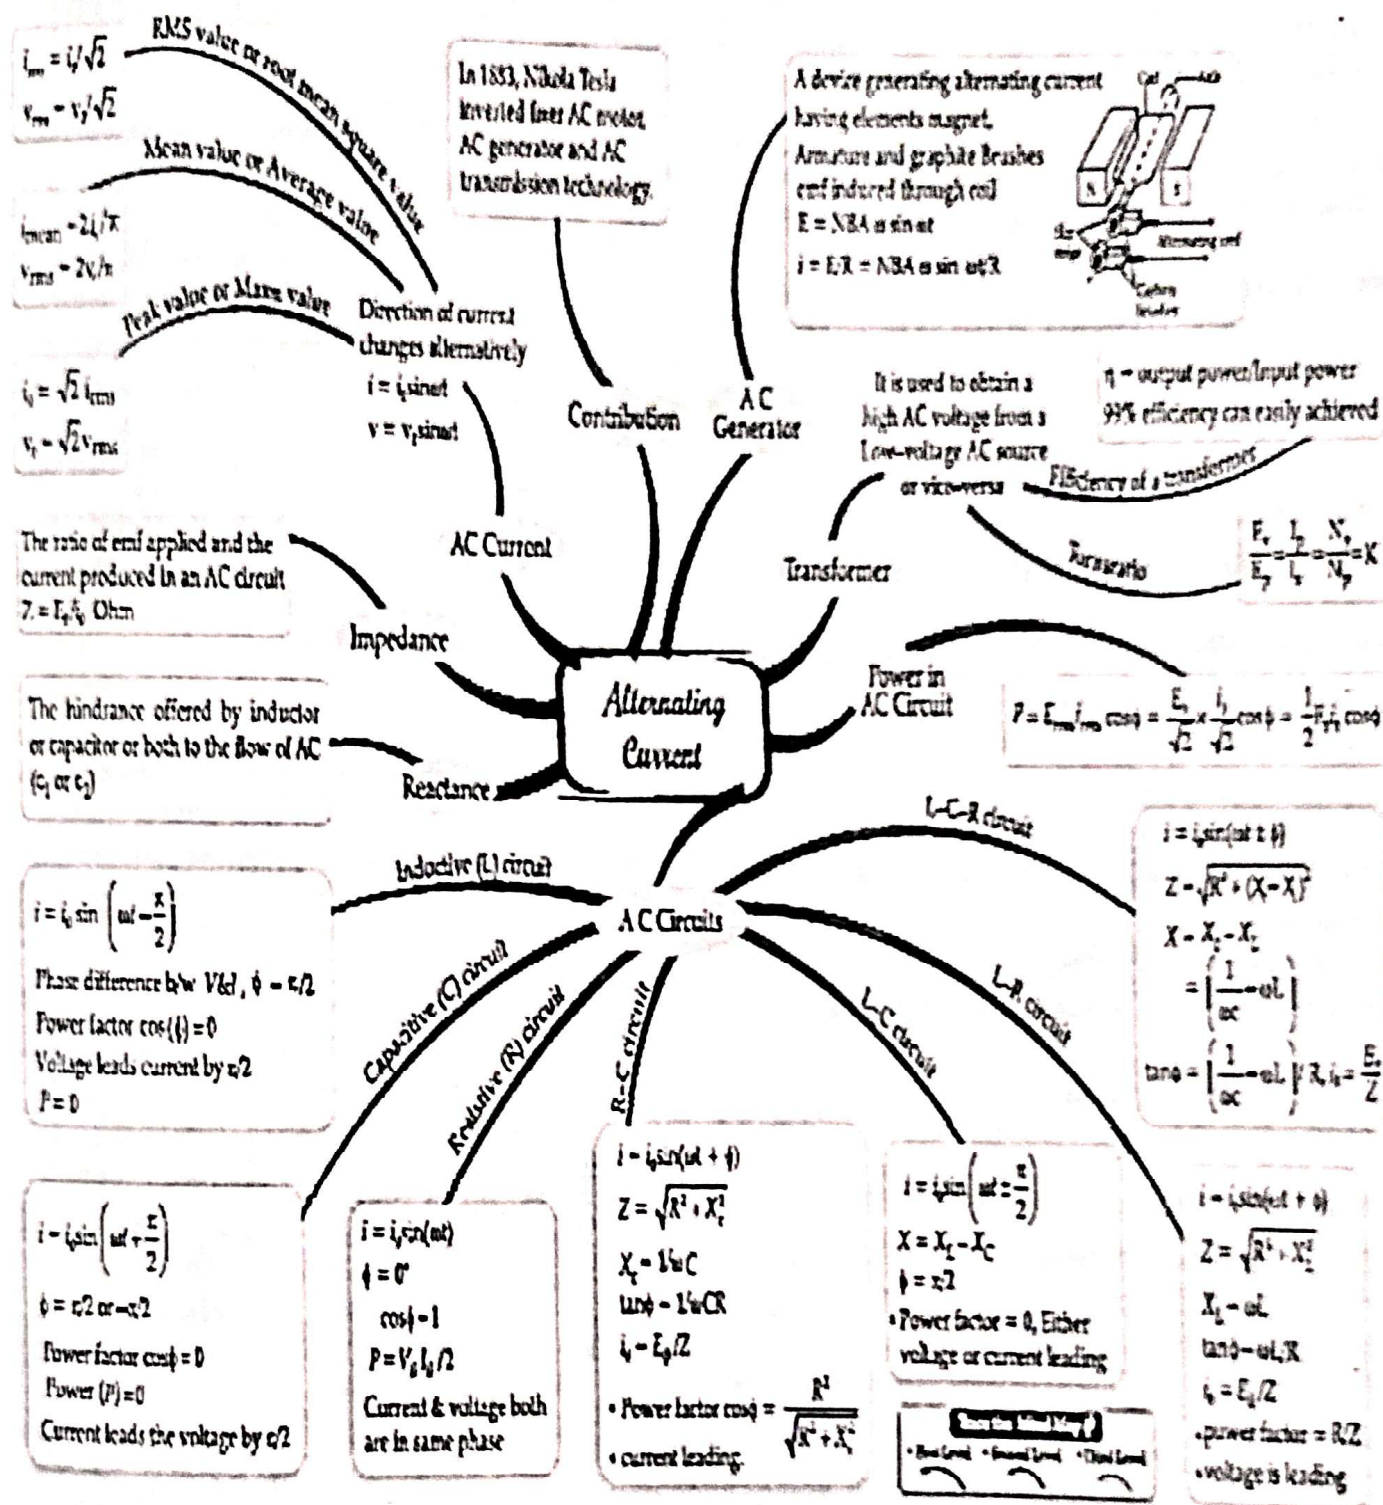 RMS value or root mean square value
i_rms = i₀/√2
v_rms = v₀/√2
Mean value or Average value
i_mean = 2i₀/π
v_rms = 2v₀/π
Peak value or Maxm value
i₀ = √2 i_rms
v₀ = √2 v_rms
Direction of current
changes alternatively
i = i₀sinωt
v = v₀sinωt
AC Current
In 1883, Nikola Tesla
AC motor,
AC generator and AC
transmission technology.
Contribution
A device generating alternating current
having elements magnet,
Armature and graphite Brushes
emf induced through coil
E = NBA ω sin ωt
i = E/R = NBA ω sin ωt/R
Coil
Axle
N
S
Slip
rings
Alternating emf
Carbon
brushes
AC
Generator
It is used to obtain a
high AC voltage from a
Low-voltage AC source
or vice-versa
Transformer
η = output power/Input power
99% efficiency can easily achieved
Efficiency of a transformer
Turns ratio
E_s/E_p = I_p/I_s = N_s/N_p = K
The ratio of emf applied and the
current produced in an AC circuit
Z = E₀/i₀ Ohm
Impedance
The hindrance offered by inductor
or capacitor or both to the flow of AC
Reactance
Alternating
Current
Power in
AC Circuit
P = E_rms i_rms cosϕ = E₀/√2 × i₀/√2 cosϕ = 1/2 E₀i₀ cosϕ
AC Circuits
Inductive (L) circuit
i = i₀ sin (ωt − π/2)
Phase difference b/w V&I, ϕ = π/2
Power factor cos(ϕ) = 0
Voltage leads current by π/2
P = 0
Capacitive (C) circuit
i = i₀sin(ωt + π/2)
ϕ = π/2 or −π/2
Power factor cosϕ = 0
Power (P) = 0
Current leads the voltage by π/2
Resistive (R) circuit
i = i₀sin(ωt)
ϕ = 0°
cosϕ = 1
P = V₀ I₀/2
Current & voltage both
are in same phase
R–C circuit
i = i₀sin(ωt + ϕ)
Z = √(R² + X_c²)
X_c = 1/ωC
tanϕ = 1/ωCR
i₀ = E₀/Z
• Power factor cosϕ =
• current leading.
L–C circuit
i = i₀sin(ωt ± π/2)
X = X_L − X_C
ϕ = π/2
• Power factor = 0, Either
voltage or current leading
L–R circuit
i = i₀sin(ωt + ϕ)
Z = √(R² + X_L²)
X_L = ωL
tanϕ = ωL/R
i₀ = E₀/Z
• power factor = R/Z
• voltage is leading
L–C–R circuit
i = i₀sin(ωt ± ϕ)
X = X_C − X_L
= (1/ωc − ωL)
tanϕ = (1/ωc − ωL)/R, i₀ = E₀/Z
Trace the Mind Map
• First Level • Second Level • Third Level